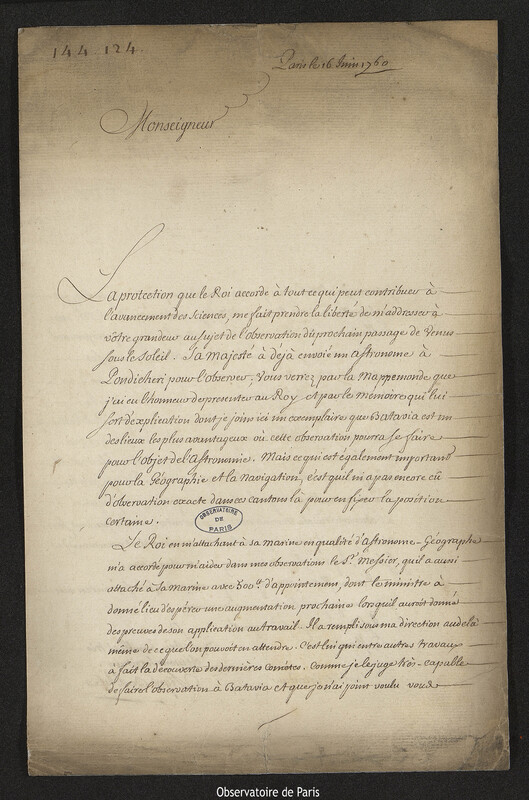 144 124
Paris le 16 Juin 1760
Monseigneur
La protection que le Roi accorde à tout ce qui peut contribuer à
l'avancement des Sciences, me fait prendre la liberté de m'addresser à
vôtre grandeur au sujet de l'observation du prochain passage de Venus
sous le Soleil. Sa Majesté à déja envoié un astronome à
Pondicheri pour l'observer; Vous verrez par la Mappemonde que
j'ai eu l'honneur de presenter au Roy et par le Mémoire qui lui
sert d'explication dont je joins ici un exemplaire que Batavia est un
des lieux les plus avantageux où cette observation pourra se faire
pour l'objet de l'astronomie. Mais ce qui est également important
pour la Géographie et la navigation, c'est qu'il n'i a pas encore eû
d'observation exacte dans ces cantons là pour en fixer la position
certaine.
OBSERVATOIRE
DE
PARIS
Le Roi en m'attachant à sa marine en qualité d'Astronome-Géographe
m'a accordé pour m'aider dans mes observations le Sr. Messier, qu'il a aussi
attaché à sa Marine avec 500lt. d'appointement, dont le ministre à
donné lieu d'espérer une augmentation prochaine lorsqu'il auroit donné
des preuves de son application au travail. Il a rempli sous ma direction au dela
même de ce que l'on pouvoit en attendre. C'est lui qui entre autres travaux
à fait la découverte des dernières comètes. Comme je le juge très-capable
de faire l'observation à Batavia et que je n'ai point voulu vous
Observatoire de Paris